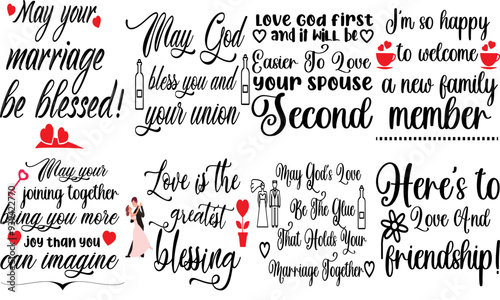 May your
marriage
be blessed!
May God
bless you and
your union
Love God first
and it will be
Easier To Love
your spouse
Second
I'm so happy
to welcome
a new family
member
May your
joining together
bring you more
Joy than you
can imagine
Love is the
greatest
blessing
May God's Love
Be The Glue
That Holds Your
Marriage Together
Here's to
Love And
friendship!
Adobe Stock